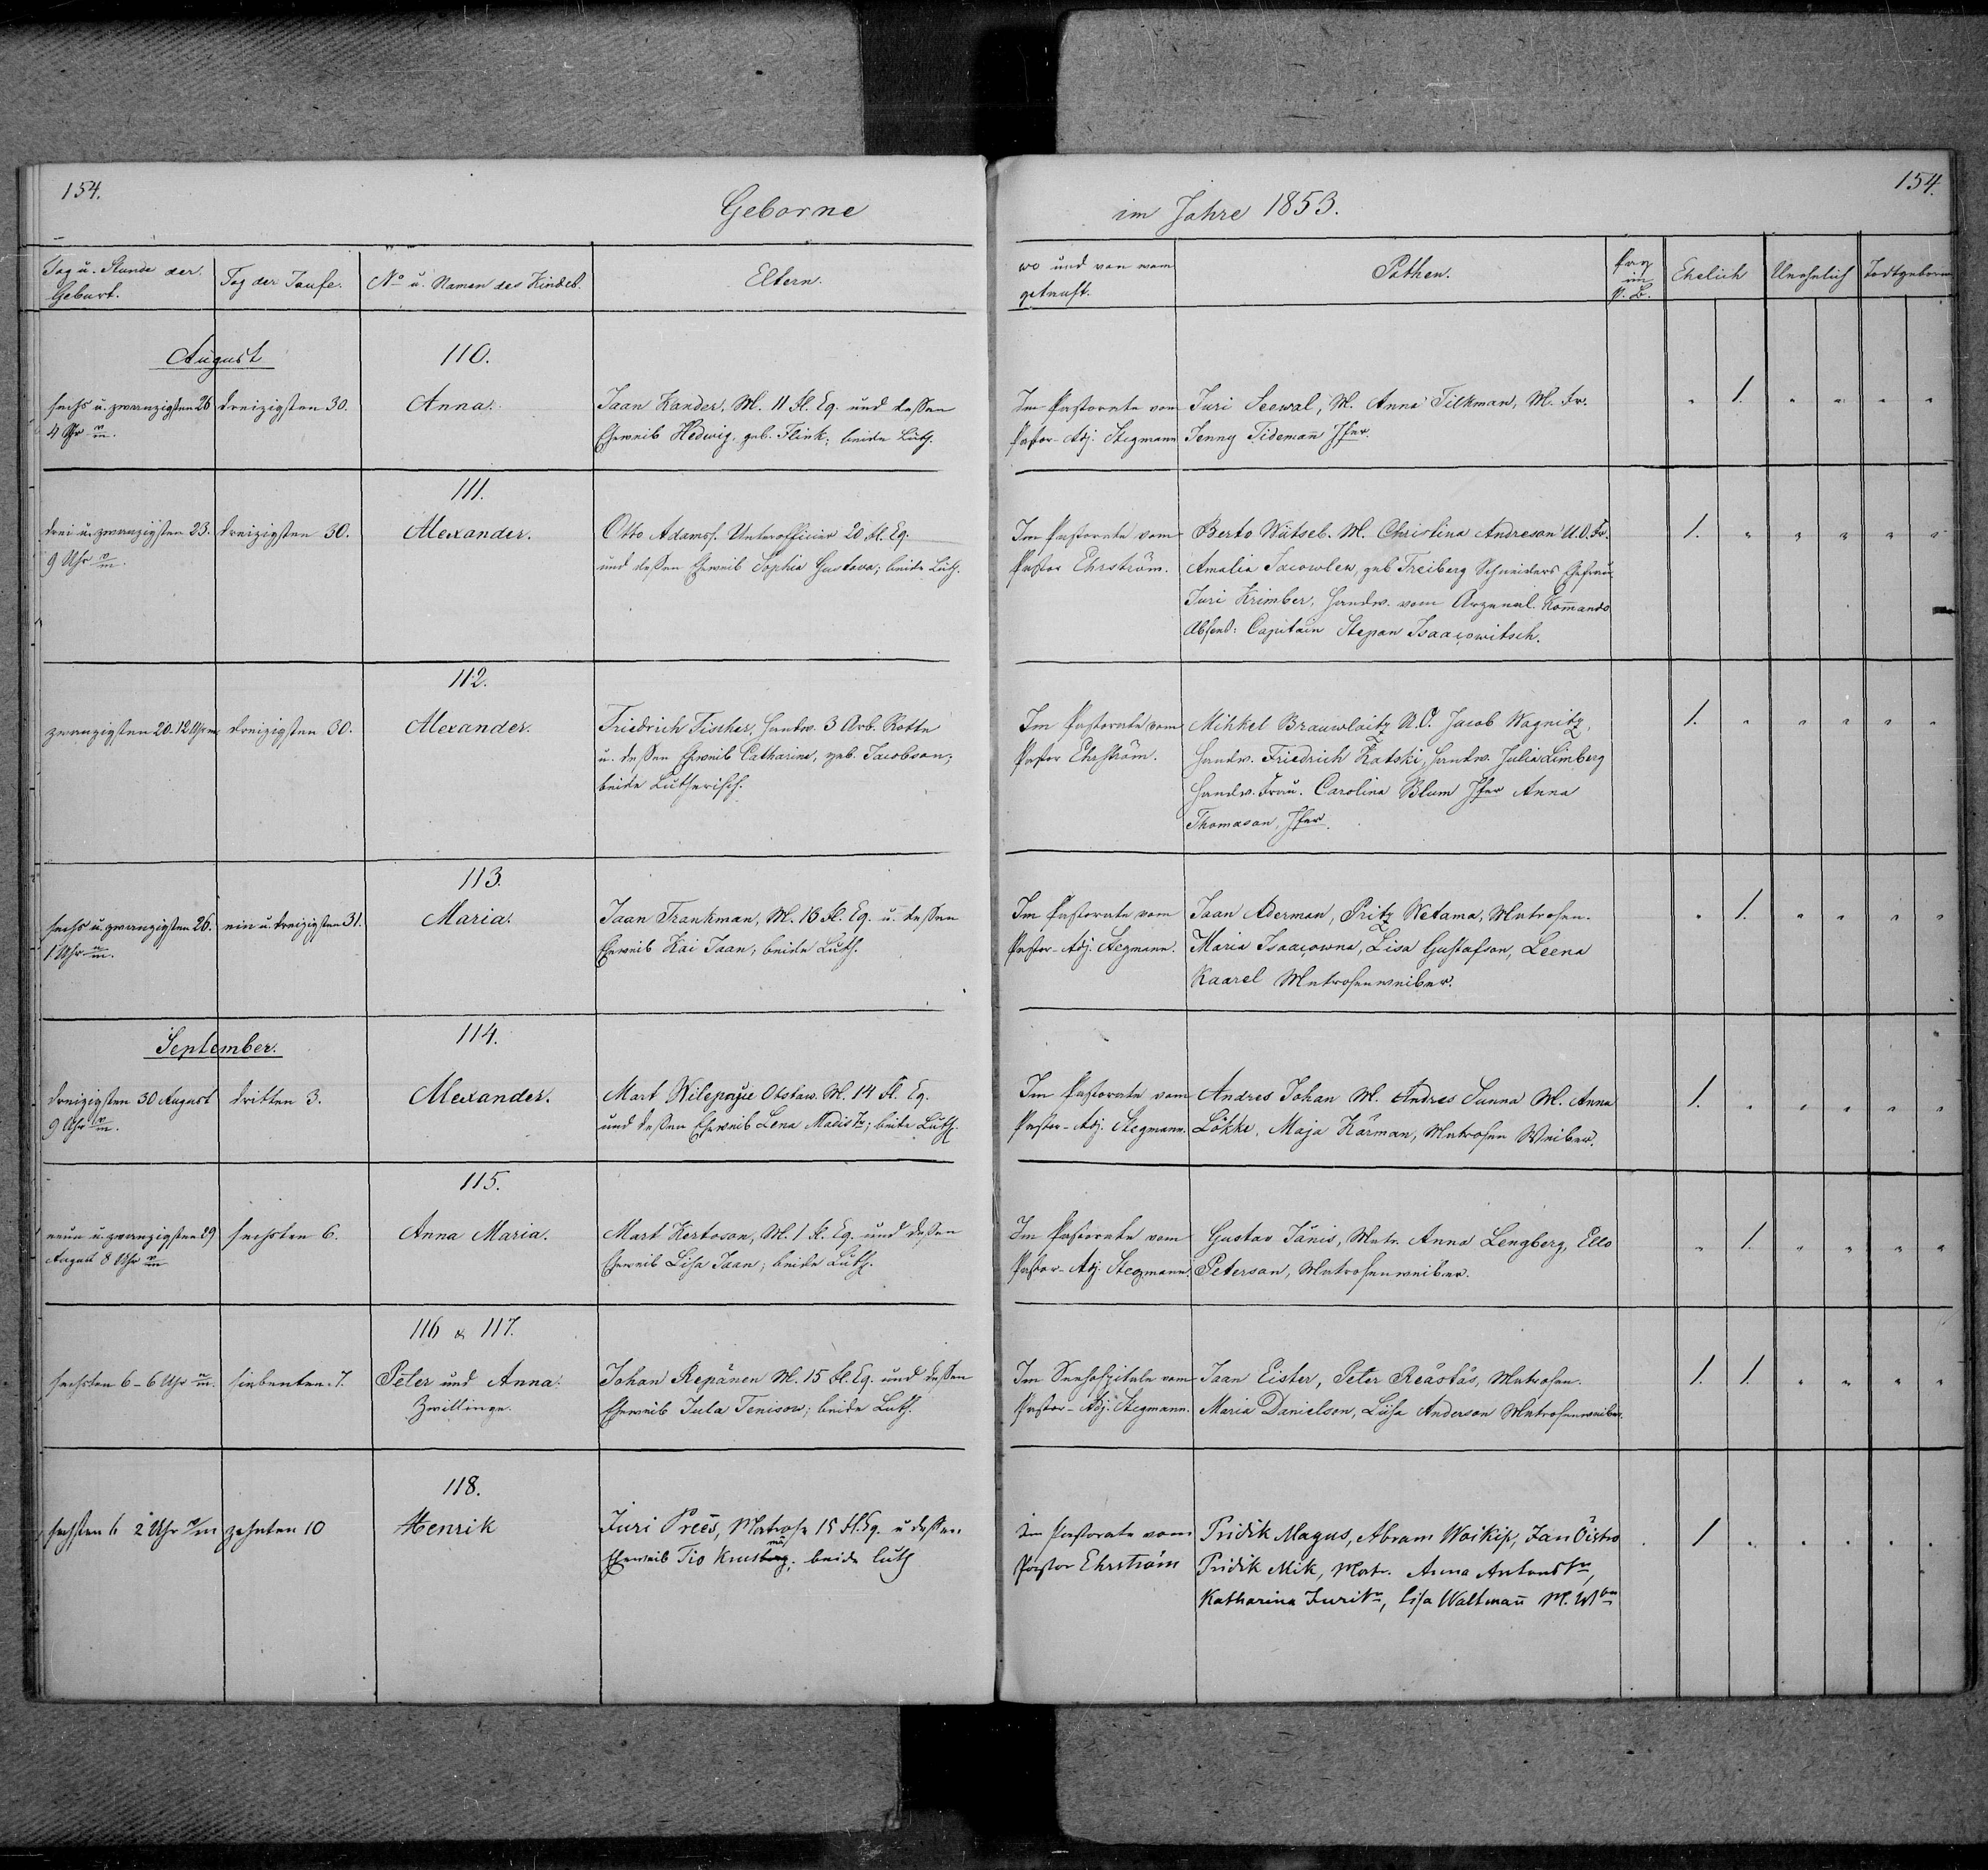 154.
Geborne
Tag u. Stunde der Geburt.
Tag der Taufe.
No u. Namen des Kindes.
Eltern.
August
110.
sechs u. zwanzigsten 26
4 Uhr v/m.
dreizigsten 30.
Anna.
Jaan Kander, M. 11 Fl. Eq. und deßen
Eheweib Hedwig, geb. Flink; beide Luth.
111.
drei u. zwanzigsten 23.
9 Uhr v/m.
dreizigsten 30.
Alexander.
Otto Adams. Unterofficier 20 Fl. Eq.
und deßen Eheweib Sophia Gustava; beide Luth.
112.
zwanzigsten 20. 12 Uhr
dreizigsten 30.
Alexander.
Friedrich Fischer, Handw. 3 Arb. Rotte
u. deßen Eheweib Catharina, geb. Jacobson;
beide Lutherisch.
113.
sechs u. zwanzigsten 26.
1 Uhr n/m.
ein u. dreizigsten 31.
Maria.
Jaan Trankman, M. 16 Fl. Eq. u. deßen
Eheweib Kai Jaan; beide Luth.
September.
114.
dreizigsten 30 August
9 Uhr v/m.
dritten 3.
Alexander.
Mart Otstaw. M. 14 Fl. Eq.
und deßen Eheweib Lena Madis; beide Luth.
115.
neun u. zwanzigsten 29
August 8 Uhr
sechsten 6.
Anna Maria.
Mart Kertoson, M. 1 Fl. Eq. und deßen
Eheweib Lisa Jaan; beide Luth.
116 & 117.
sechsten 6 - 6 Uhr n/m.
siebenten 7.
Peter und Anna.
Zwillinge.
Johan Repänen M. 15 Fl. Eq. und deßen
Eheweib Jula Tenisow; beide Luth.
118.
sechsten 6 2 Uhr v/m
zehnten 10
Henrik
Juri Prees, Matrose 15 Fl. Eq. u deßen
Eheweib Tio beide luth
154.
im Jahre 1853.
wo und von wem
getauft.
Pathen.
im
P. B.
Ehelich
Unehelich
Todtgeboren
Im Pastorate vom
Pastor-Adj. Stegmann
Juri Seewal, M. Anna Tilkman, M. Fr.
Jenny Tidemañ Jfer.
" 1. " " " "
Im Pastorate vom
Pastor Ehrström.
Berto Wätseb. M. Christina Andreson U.O. Fr.
Amalia Jacowlew, geb Freiberg Schneiders Ehefrau
Juri Krimber, Handw. vom Arzenal. Kom̄ando
Abscid: Capitain Stepan Isaacowitsch.
1. " " " " "
Im Pastorate vom
Pastor Ehrström.
Mihkel Brauwlaitz U.O. Jacob Wagnitz,
Handw. Friedrich Katski, Handw. Julia Limberg
Handw. Frau. Carolina Blum Jfer Anna
Thomason, Jfer.
1. " " " " "
Im Pastorate vom
Pastor-Adj. Stegmann.
Jaan Aderman, Pritz Wetama, Matrosen.
Maria Isaacowna, Lisa Gustafson, Leena
Kaarel Matrosenweiber.
" 1. " " " "
Im Pastorate vom
Pastor-Adj. Stegmann.
Andres Johan M. Andres Sunna M. Anna
Lökke, Maja Kärman, Matrosen Weiber.
1. " " " " "
Im Pastorate vom
Pastor-Adj. Stegmann.
Gustav Jänis, Matr. Anna Lengberg, Ello
Peterson, Matrosenweiber.
" 1. " " " "
Im Seehospitale vom
Pastor-Adj. Stegmann.
Jaan Eister, Peter Reästäs, Matrosen.
Maria Danielson, Liisa Anderson Matrosenweiber.
1. 1. " " " "
Im Pastorate vom
Pastor Ehrström
Pridik Magus, Abram Woikip, Jan Öistro
Pridik Mik, Matr. Anna Antons
Katharina Juri, Lisa Waltmañ M. Wbr
1 " " " " "